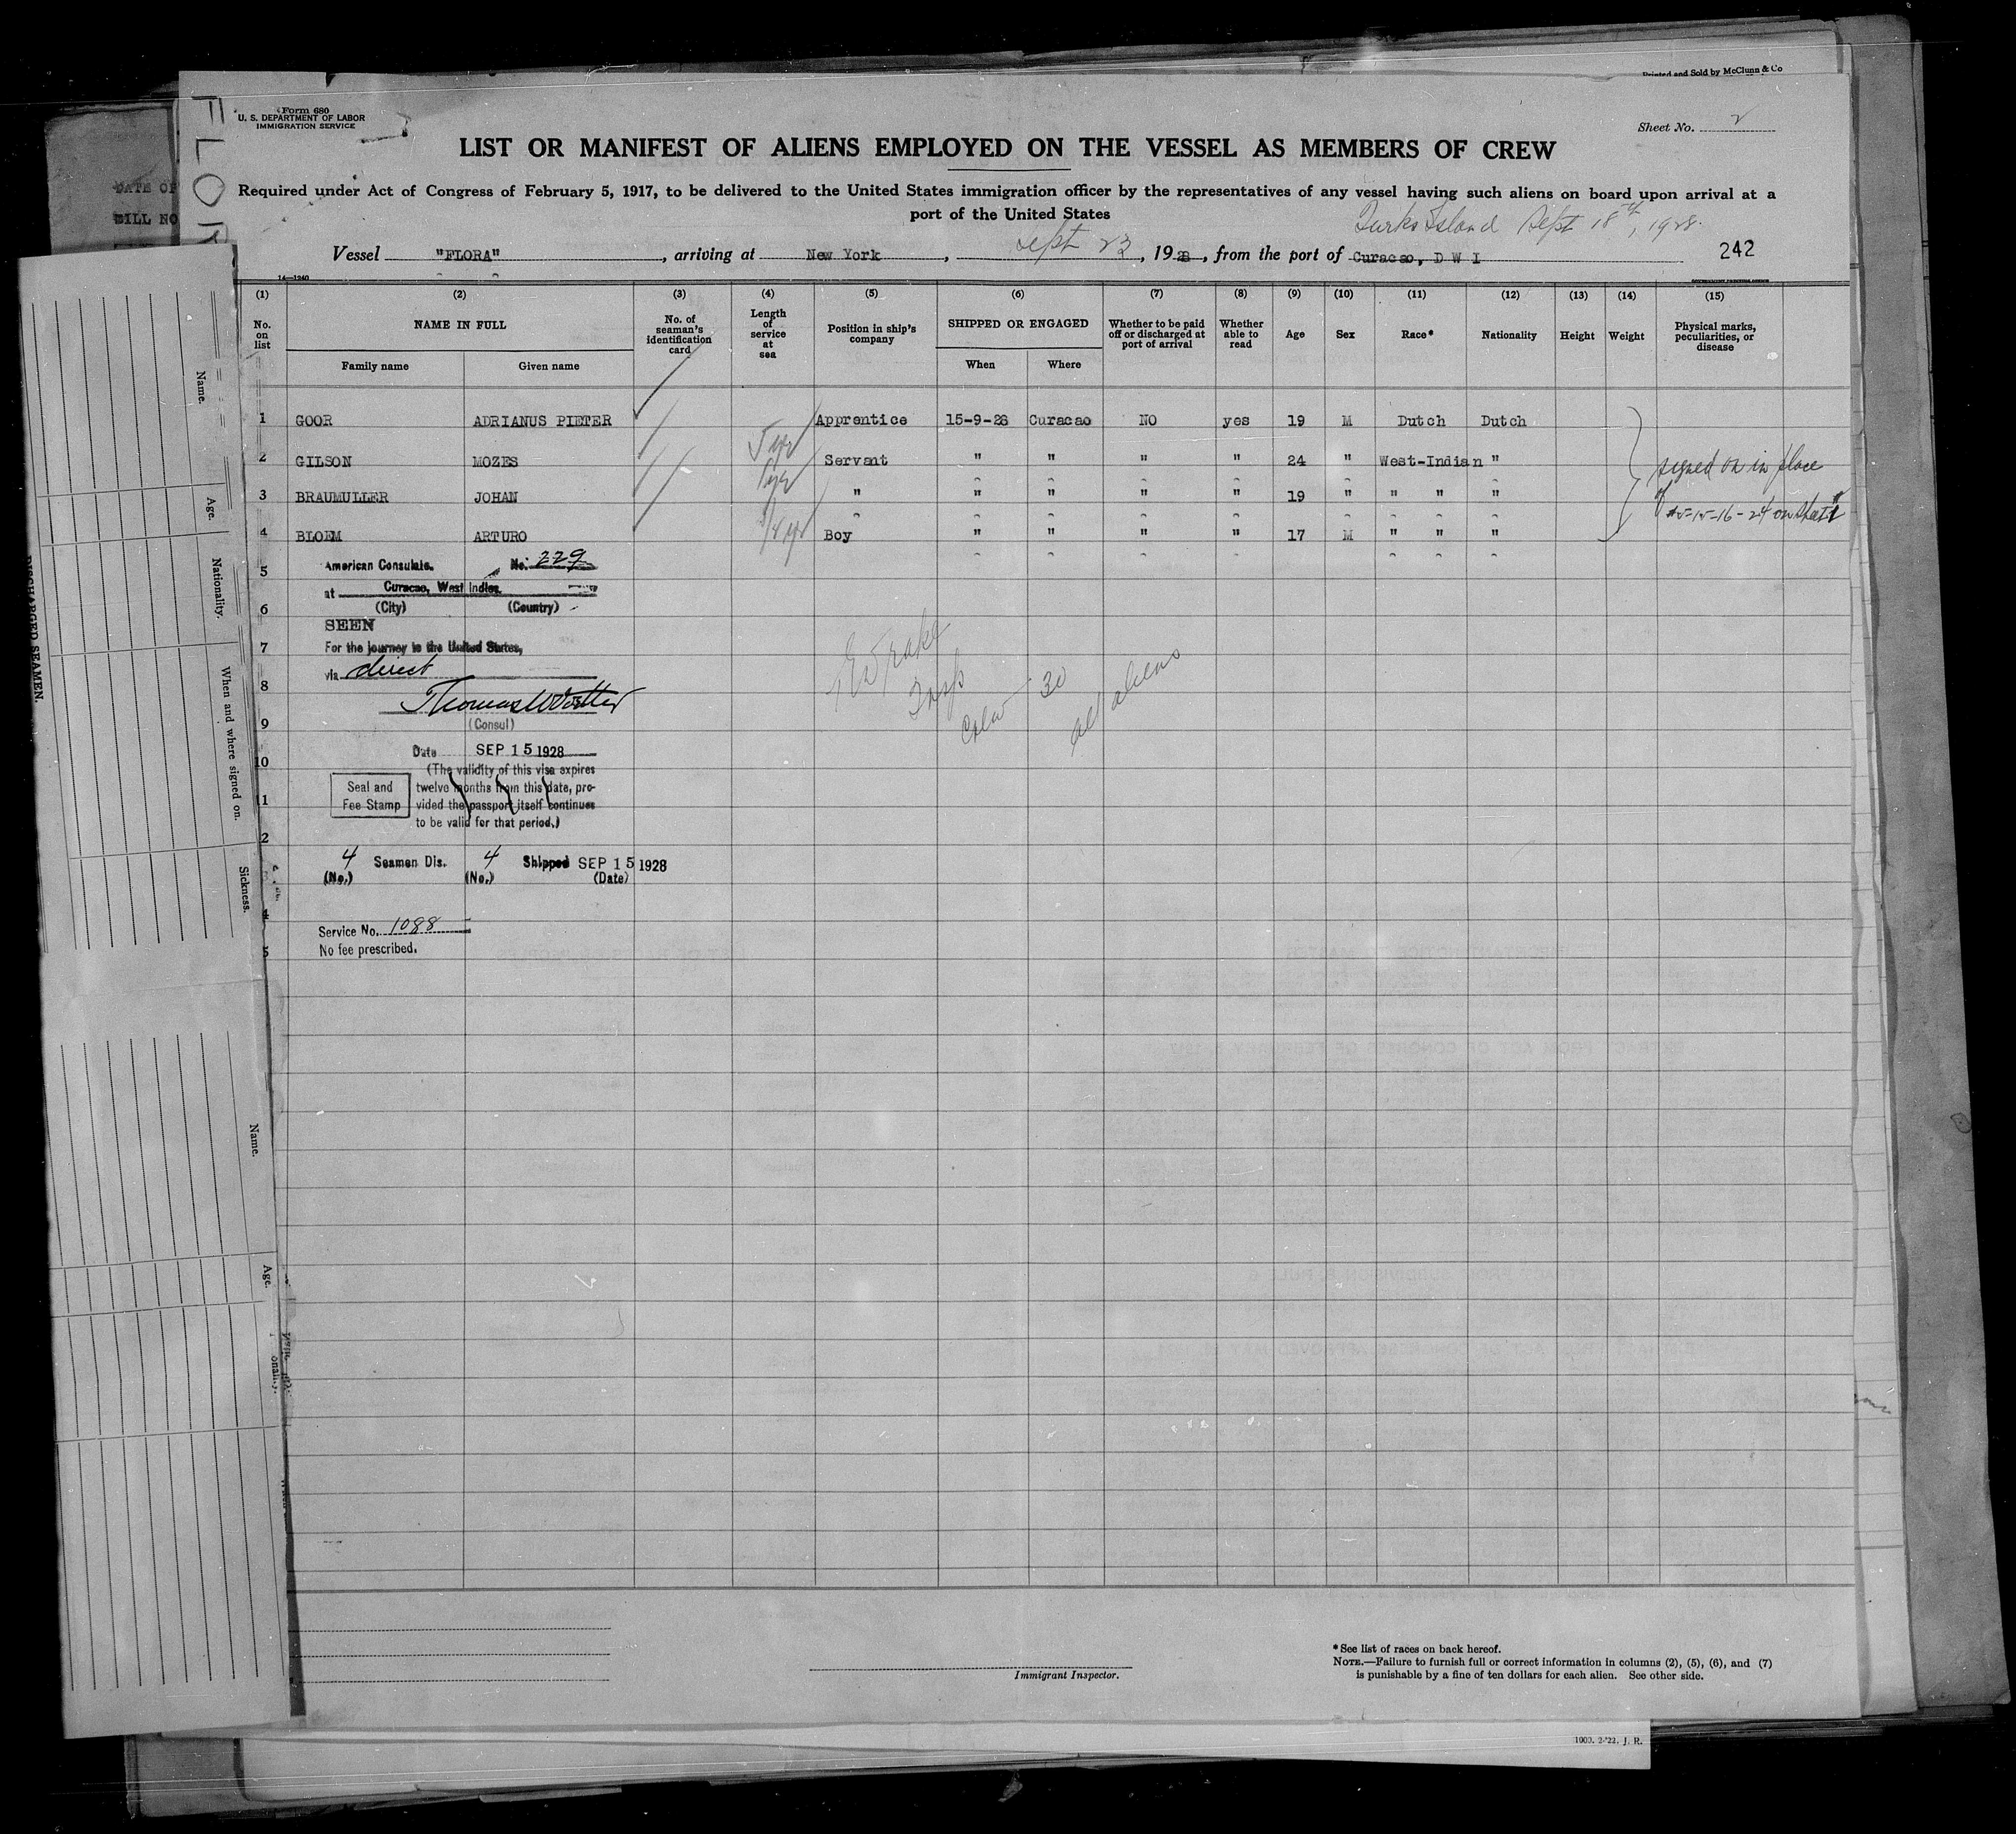 Printed and Sold by McClunn & Co
Form 680
U. S. DEPARTMENT OF LABOR
IMMIGRATION SERVICE
Sheet No. 2
FLOR
DATE OF
BILL NO
LIST OR MANIFEST OF ALIENS EMPLOYED ON THE VESSEL AS MEMBERS OF CREW
Required under Act of Congress of February 5, 1917, to be delivered to the United States immigration officer by the representatives of any vessel having such aliens on board upon arrival at a
port of the United States
Turks Island Sept 18th, 1928.
Vessel "FLORA", arriving at New York, Sept 23, 1928, from the port of Curacao, D W I 242
14—1240
(1) (2) (3) (4) (5) (6) (7) (8) (9) (10) (11) (12) (13) (14) (15)
No. on list NAME IN FULL No. of seaman's identification card Length of service at sea Position in ship's company SHIPPED OR ENGAGED Whether to be paid off or discharged at port of arrival Whether able to read Age Sex Race* Nationality Height Weight Physical marks, peculiarities, or disease
Family name Given name When Where
1 GOOR ADRIANUS PIETER Apprentice 15-9-28 Curacao NO yes 19 M Dutch Dutch
2 GILSON MOZES 5 yr Servant " " " " 24 " West-Indian "
3 BRAUMULLER JOHAN 1 yr " " " " " 19 " " " "
4 BLOEM ARTURO 1/4 yr Boy " " " " 17 M " " "
signed on in place
of #5-15-16-24 on sheet 1
5 American Consulate. No. 229
at Curacao, West Indies.
6 (City) (Country)
SEEN
7 For the journey to the United States,
via direct
8
Thomas W
9 (Consul)
Date SEP 15 1928
10 (The validity of this visa expires
Seal and Fee Stamp
twelve months from this date, pro-
11 vided the passport itself continues
to be valid for that period.)
2
4 Seamen Dis. 4 Shipped SEP 15 1928
(No.) (No.) (Date)
4
Service No. 1088
5 No fee prescribed.
Drake
Insp
Crew — 30
all aliens
Name.
Age.
Nationality.
When and where signed on.
Sickness.
DISCHARGED SEAMEN.
Name.
Age.
Immigrant Inspector.
*See list of races on back hereof.
NOTE.—Failure to furnish full or correct information in columns (2), (5), (6), and (7)
is punishable by a fine of ten dollars for each alien. See other side.
1000. 2-'22. J. R.